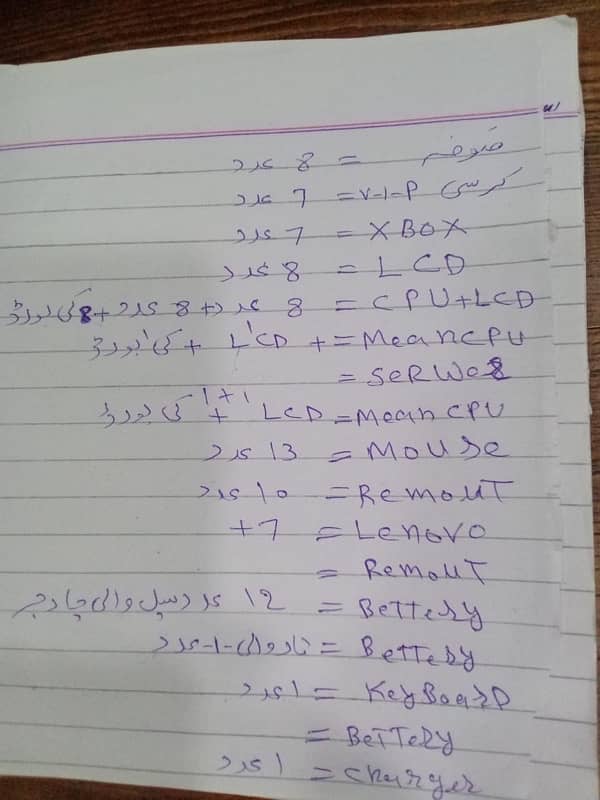 صوفہ = 8 عدد
کرسی V-I-P = 7 عدد
XBOX = 7 عدد
LCD = 8 عدد
CPU+LCD = 8 عدد + 8 عدد + 8 کی بورڈ
MeanCPU = + LCD 1 + کی بورڈ 1
SeRWeR =
MeanCPU = LCD + کی بورڈ 1+1
MOUSe = 13 عدد
ReMOUT = 10 عدد
Lenovo = 7+
ReMOUT =
BeTTeRy = 12 عدد سیل والی چارجر
BeTTeRy = تار والی -1- عدد
KeyBoaRD = 1 عدد
BeTTeRy =
chaRgeR = 1 عدد